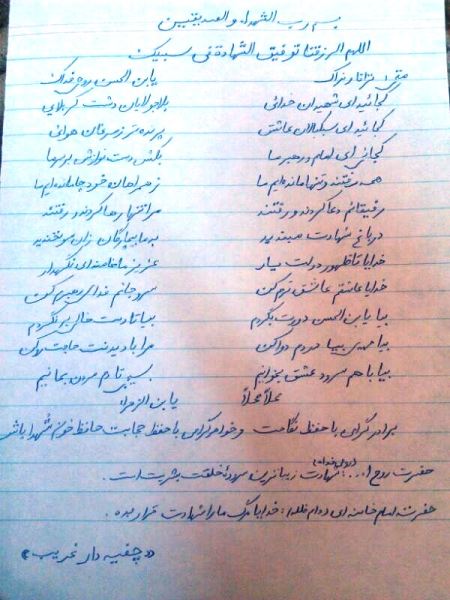 بسم رب الشهداء و الصدیقین
اللهم الرزقنا توفیق الشهادة فی سبیلک
متی ترانا و نراک یابن الحسن روحی فداک
کجائید ای شهیدان خدائی بلاجویان دشت کربلایی
کجائید ای سبکبالان عاشق پرنده‌تر ز مرغان هوائی
کجائی ای امام و رهبر ما بکش دست نوازش بر سر ما
همه رفتند و تنها مانده‌ایم ما ز همراهان خود جا مانده‌ایم ما
رفیقانم دعا کردند و رفتند مرا تنها رها کردند و رفتند
در باغ شهادت مبندید به ما بیچارگان زان سو نخندید
خدایا تا ظهور دولت یار عزیز ما خامنه‌ای نگهدار
خدایا عاشقم عاشق‌ترم کن سر و جانم فدای رهبرم کن
بیا یابن الحسن دورت بگردم بیا تا دست خالی برنگردم
بیا مهدی بیا دردم دوا کن مرا با دیدنت حاجت روا کن
بیا با هم سرود عشق بخوانیم بسیجی تا دم مردن بمانیم
یابن الزهرا
برادر گرامی با حفظ نگاهت و خواهر گرامی با حفظ حجابت حافظ خون شهدا باشید
حضرت روح ا... : شهادت زیباترین سروده خلقت بشریت است.
حضرت امام خامنه ای دام ظله : خدایا مرگ ما را شهادت قرار بده.
«چفیه دار غریب»